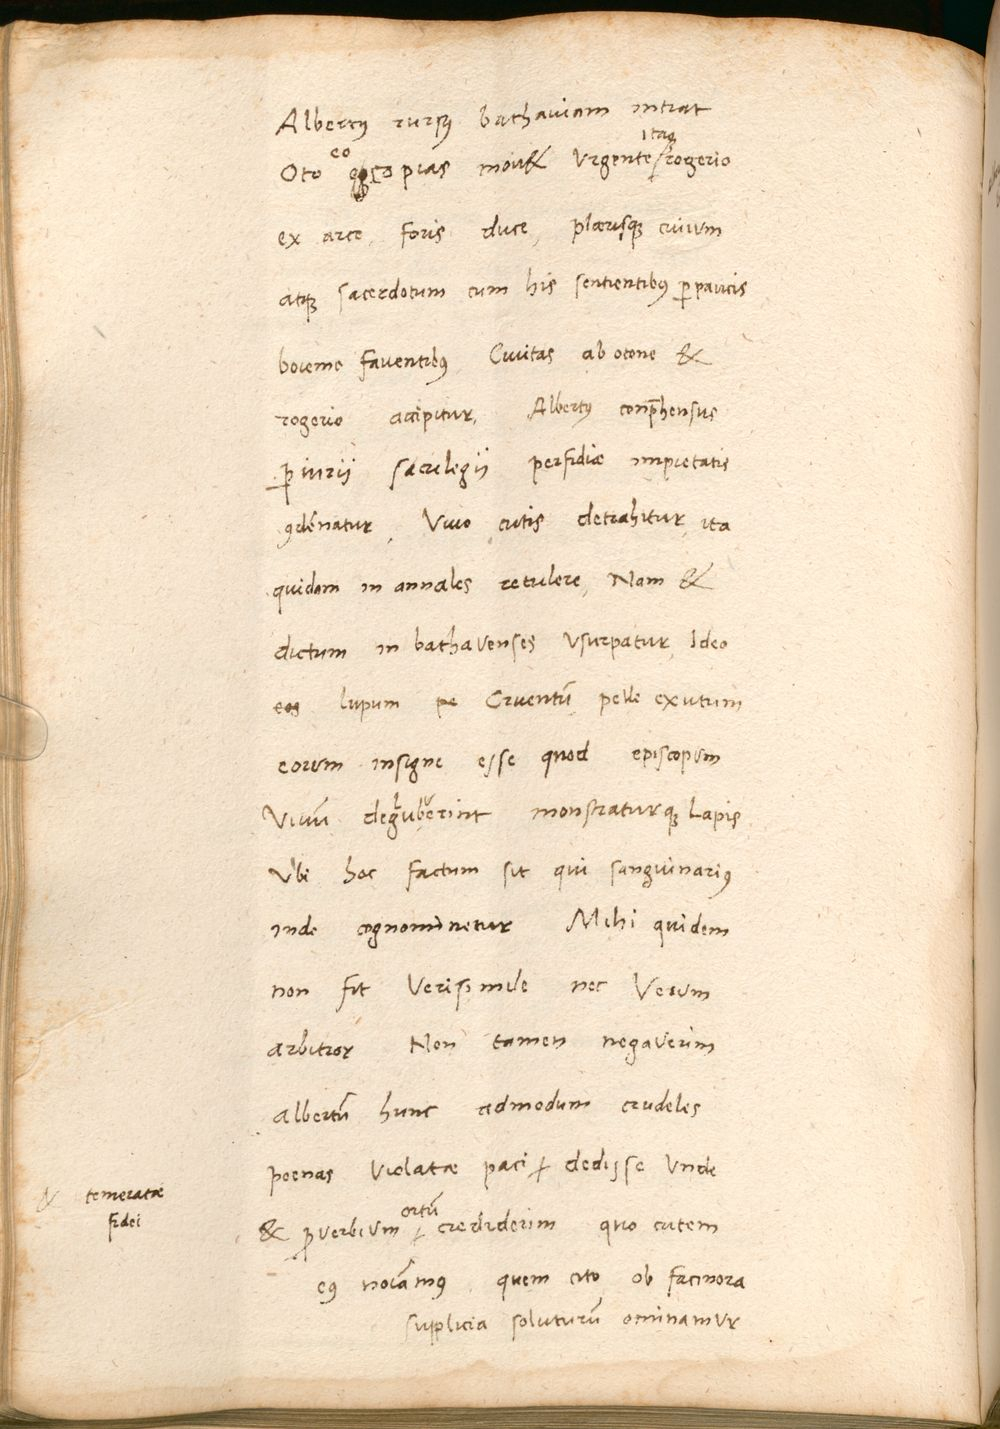 Albertꝰ rursꝰ bathauiam intrat
itaq
eo
Oto copias mouet Vrgente rogerio
ex arce, foris duce, plærisqꝫ ciuium
atqꝫ sacerdotum cum his sentientibꝰ ꝑpaucis
boiemo fauentibꝰ Ciuitas ab otone &
rogerio accipitur, Albertꝰ conp̄hensus
ꝑiurij sacrilegij perfidiæ impietatis
ꝯdēnatur, Viuo cutis detrahitur, ita
quidam in annales retulere, Nam &
dictum in bathavenses Vsurpatur, Ideo
eos lupum pe Cruentū pelle exutum
eorum insigne esse quod episcopum
Viuū deglubuerint monstraturqꝫ Lapis
Vbi hoc factum sit qui sanguinariꝰ
inde cognominetur Mihi quidem
non fit Verisimile nec Verum
arbitror Non tamen negaverim
albertū hunc admodum crudeles
poenas violatæ paci dedisse Vnde
& temeratæ
fidei
ortū
& ꝓverbium crediderim quo cutem
eꝰ notamꝰ quem cito ob facinora
suplicia soluturū ominamur